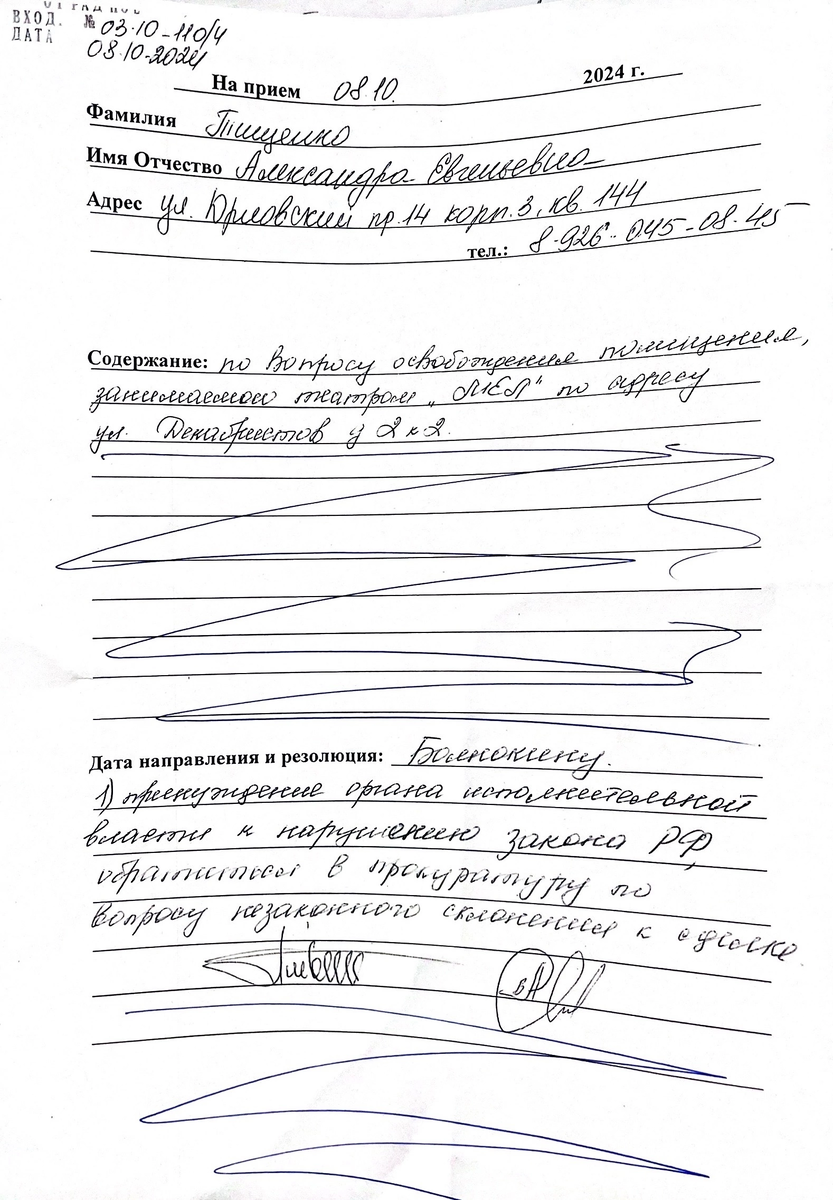 ВХОД. № 03.10-110/4
ДАТА 08.10.2024
На прием 08.10. 2024 г.
Фамилия Тищенко
Имя Отчество Александра Евгеньевна
Адрес ул. Юрловский пр. 14 корп. 3, кв. 144
тел.: 8-926-045-08-45
Содержание: по вопросу освобождения помещения,
занимаемого театром „МЕЛ“ по адресу
ул. Декабристов д 2 к 2.
Дата направления и резолюция:
1) принуждение органа исполнительной
власти к нарушению закона РФ,
обратиться в прокуратуру по
вопросу незаконного склонения к сделке